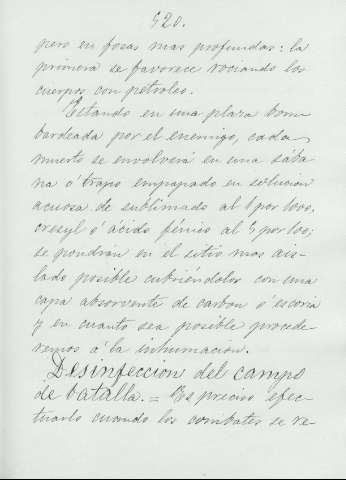 520.
pero en fosas mas profundas: la
primera se favorece rociando los
cuerpos con petroleo.
Estando en una plaza bom-
bardeada por el enemigo, cada
muerto se envolverá en una sába-
na ó trapo empapado en solucion
acuosa de sublimado al 1 por 1000,
cresyl ó ácido fénico al 5 por 100;
se pondrán en el sitio mas ais-
lado posible cubriéndolos con una
capa absorvente de carbon ó escoria
y en cuanto sea posible procede-
remos á la inhumacion.
Desinfeccion del campo
de batalla. = Es preciso efec-
tuarlo cuando los combates se re-